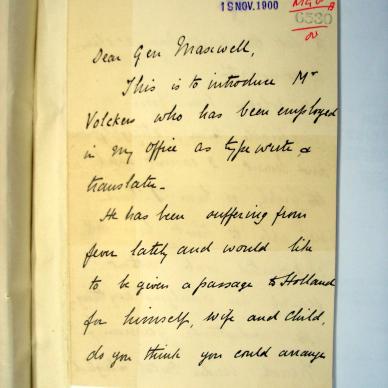 15 NOV. 1900
Dear Gen Maxwell,
This is to introduce Mr
Volckers who has been employed
in my office as type write &
translater -
He has been suffering from
fever lately and would like
to be given a passage to Holland
for himself, wife and child,
do you think you could arrange